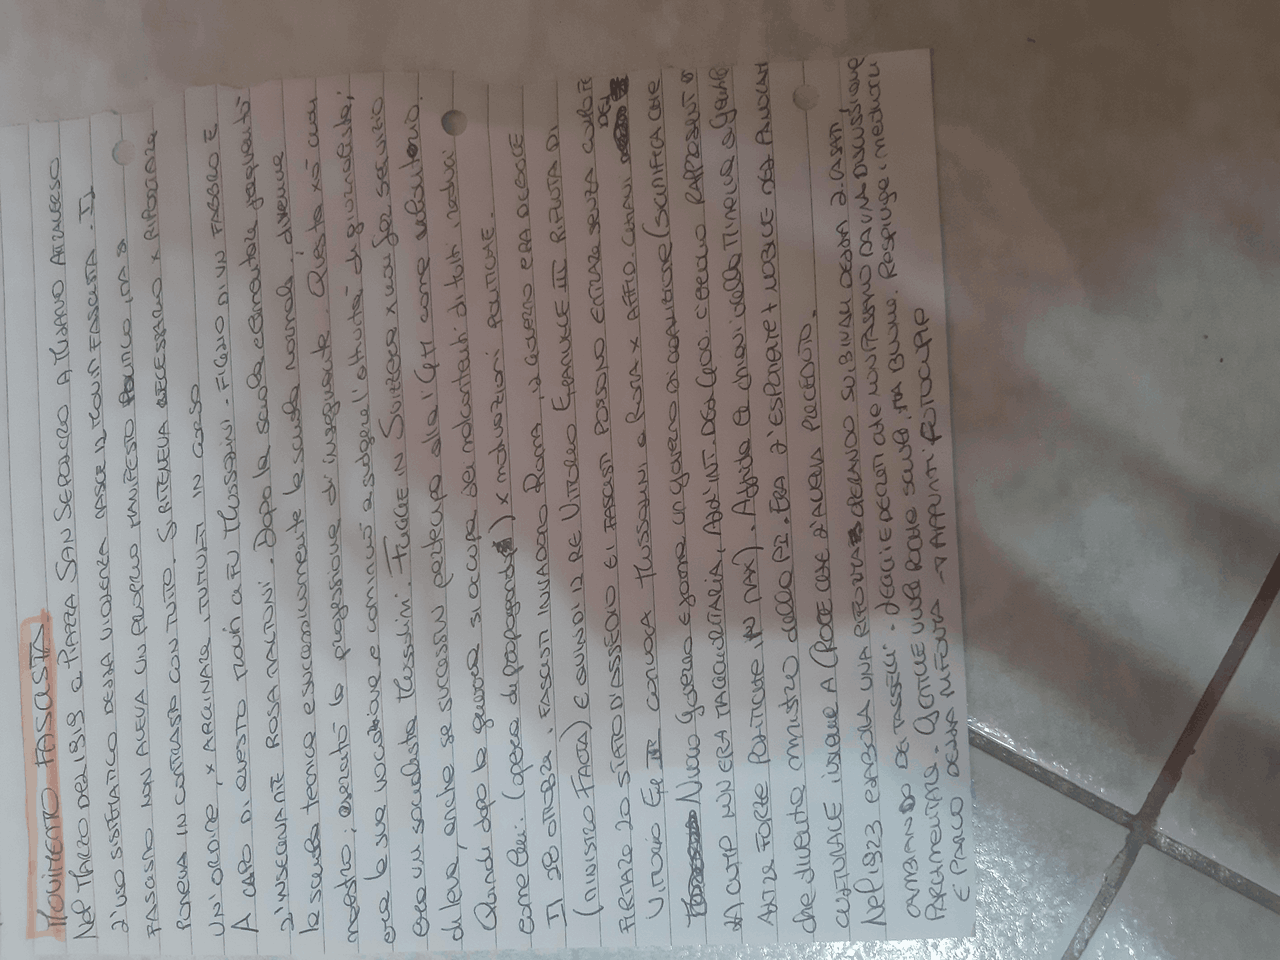 MOVIMENTO FASCISTA
Nel MARZO DEL 1919 a PIAZZA SAN SEPOLCRO A MILANO ATTRAVERSO
L'USO SISTEMATICO DELLA VIOLENZA NASCE IL MOVIM FASCISTA. IL
FASCISMO NON AVEVA UN PROPRIO MANIFESTO POLITICO, MA SI
PONEVA IN CONTRASTO CON TUTTO. SI RITENEVA NECESSARIO X RIPORTARE
UN'ORDINE, X ARGINARE I TUMULTI IN CORSO
A CAPO DI QUESTO MOVIM C'È FU MUSSOLINI - FIGLIO DI UN FABBRO E
L'INSEGNANTE ROSA MALTONI. Dopo la scuola elementare frequentò
la scuola tecnica e successivamente la scuola normale, divenne
maestro; esercitò la professione di insegnante. Questa xò non
era la sua vocazione e cominciò a svolgere l'attività di giornalista;
era un socialista Mussolini. FUGGE IN SVIZZERA x non far servizio
di leva, anche se successiv partecipò alla 1° GM come volontario.
Quindi dopo la guerra si occupa dei malcontenti di tutti reduci
come lui. (opera di propaganda) x motivazioni POLITICHE.
IL 28 OTTOBRE, I FASCISTI INVADONO ROMA, IL GOVERNO ERA DEBOLE
(MINISTRO FACTA) E QUINDI IL RE VITTORIO EMANUELE III RIFIUTA DI
FIRMARE LO STATO D'ASSEDIO E I FASCISTI POSSONO ENTRARE SENZA
VITTORIO EM III convoca MUSSOLINI a ROMA X AFFID. CHIAVI DEL
Nuovo Governo e forma un governo DI COALIZIONE (SIGNIFICA CHE
LA COMP NON ERA MAGGIORITARIA, ALL'INT. DEL GOV. c'erano RAPPRESENT DI
ALTRE FORZE POLITICHE IN MAX). Affida le chiavi della MINERVA a Gentile
che diventa ministro della P.I. ERA L'ESPONENTE + NOBILE DEL PANORAMA
CULTURALE insieme A CROCE CHE L'AVEVA PRECEDUTO.
Nel 1923 EMISE UNA RIFORMA OPERANDO SUI BINARI DELLA L. CASATI,
CAMBIANDO DEI TASSELLI. - LEGGI E DECRETI CHE NON PASSANO DA UNA DISCUSSIONE
PARLAMENTARE. GENTILE VUOLE POCHE SCUOLE, MA BUONE. Respinge i mediocri
E PARLO DELLA RIFORMA → APPUNTI FOTOCOPIE